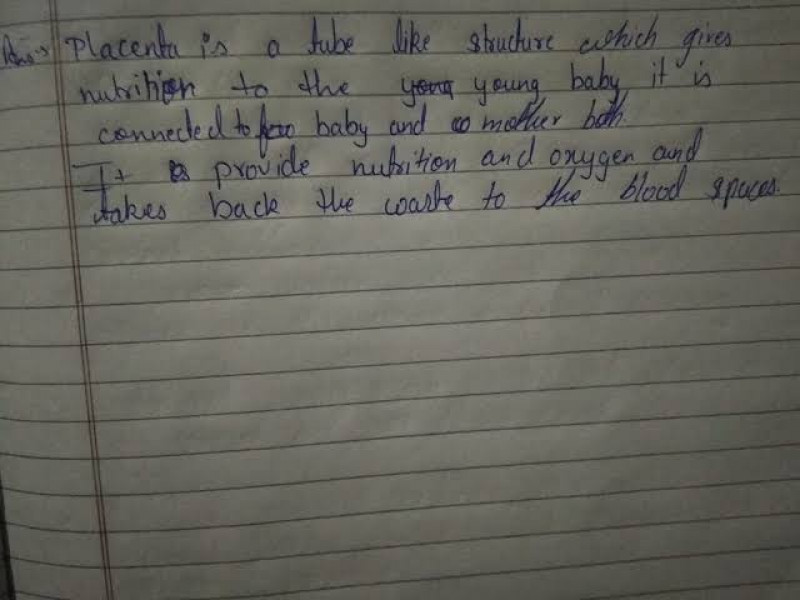 Ans:- Placenta is a tube like structure which gives
nutrition to the young baby it is
connected to baby and mother both.
It provide nutrition and oxygen and
takes back the waste to the blood spaces.